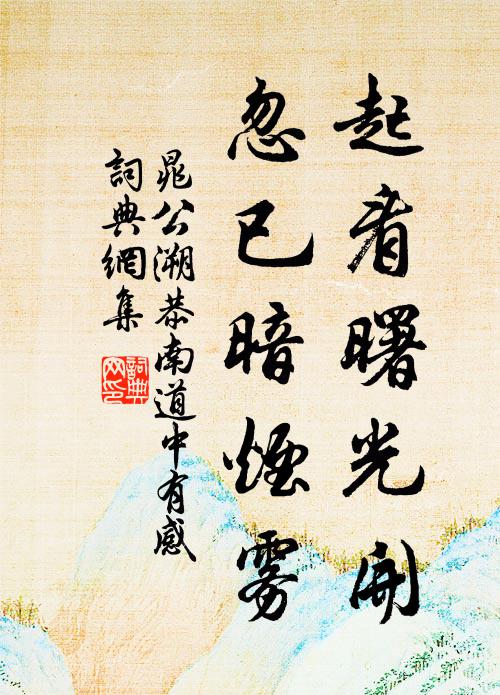 起看曙光開
忽已暗煙霧
晁公溯恭南道中有感
詞典網集
詞典
网印